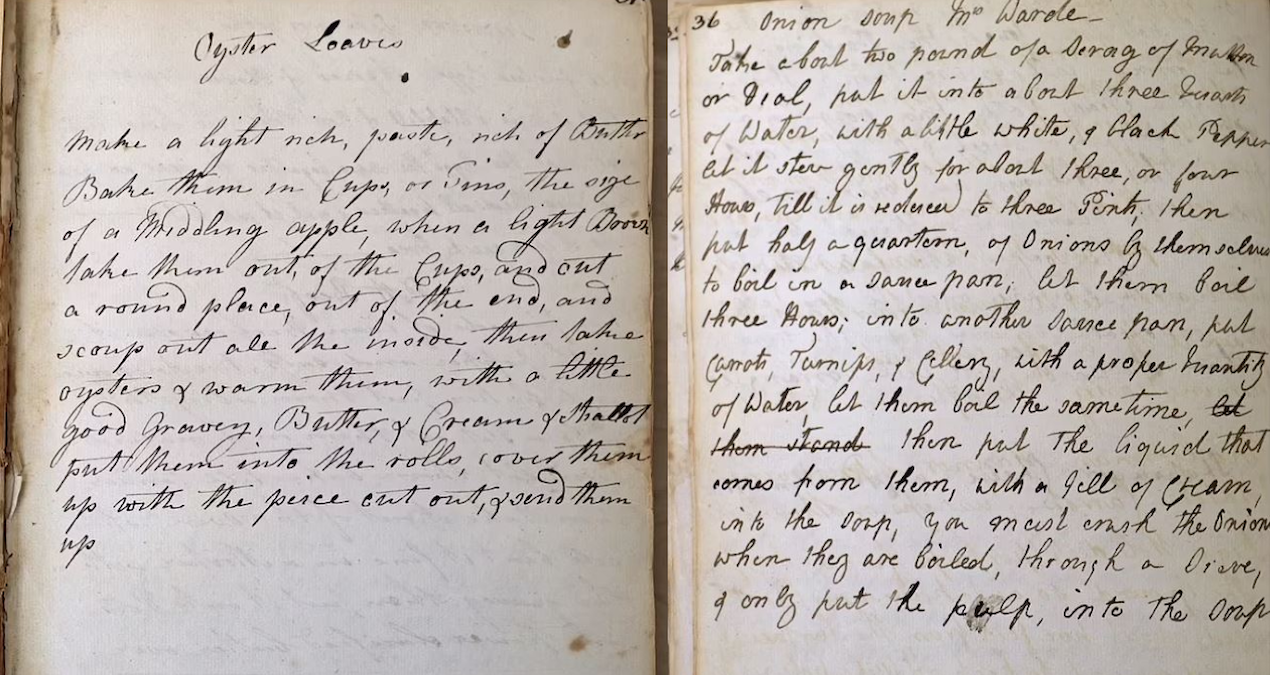 Oyster Loaves
Make a light rich, paste, rich of Butter
Bake them in Cups, or Tins, the size
of a Middling apple, when a light Brown
take them out, of the Cups, and cut
a round place, out of the end, and
scoup out all the inside, then take
oysters & warm them, with a little
good Gravey, Butter, & Cream & Shallot
put them into the rolls, cover them
up with the peice cut out, & send them
up
36 Onion Soup Mrs Warde
Take about two pound of a Scrag of Mutton
or Veal, put it into about three Quarts
of Water, with a little white, & black Pepper
let it stew gently for about three, or four
Hours, till it is reduced to three Pints, then
put half a quartern, of Onions by themselves
to boil in a sauce pan, let them boil
three Hours; into another sauce pan, put
Carrots, Turnips, & Cellery, with a proper Quantity
of Water, let them boil the same time, let
them stand then put the liquid that
comes from them, with a Gill of Cream,
into the Soup, you must crush the Onions
when they are boiled, through a Sieve,
& only put the pulp, into the Soup